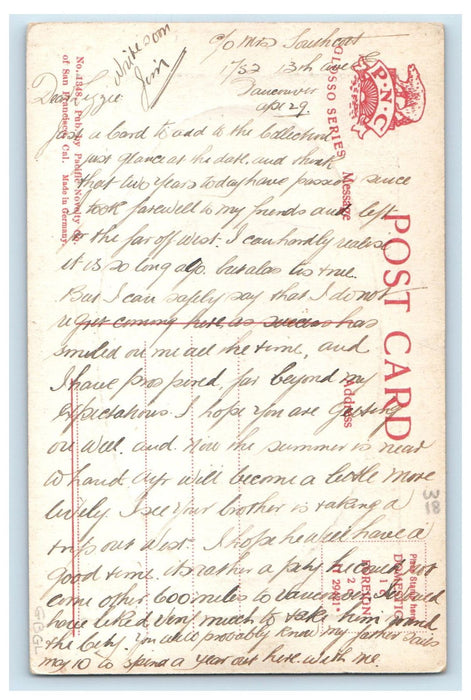 c/o Mrs Southcott
1737 13th ave E
Vancouver
apr 29
write soon
Jim
Dear Lizzie
Just a Card to add to the Collection
just glance at the date and think
that two years to day have passed since
I took farewell to my friends and left
for the far off west. I can hardly realise
it is so long ago. but alas tis true.
But I can safely say that I do not
regret coming here, as success has
smiled on me all the time, and
I have prospered far beyond my
expectations. I hope you are getting
on well. and now the summer is near
at hand Ayr will become a little more
lively. I see your brother is taking a
trip out West. I hope he will have a
good time. its rather a pity he could not
come other 600 miles to Vancouver I would
have liked very much to take him round
the city. You will probably know my father sails
may 10 to spend a year out here with me.
No. 4348. Pub. by Pacific Novelty Co.
of San Francisco, Cal. Made in Germany
P.N.C
SERIES
POST CARD
Message
Address
Place Stamp here
DOMESTIC
1
FOREIGN
2
38
GBGL